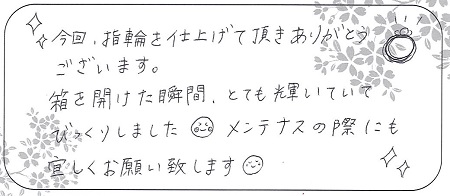 今回、指輪を仕上げて頂きありがとう
ございます。
箱を開けた瞬間、とても輝いていて
びっくりしました メンテナスの際にも
宜しくお願い致します